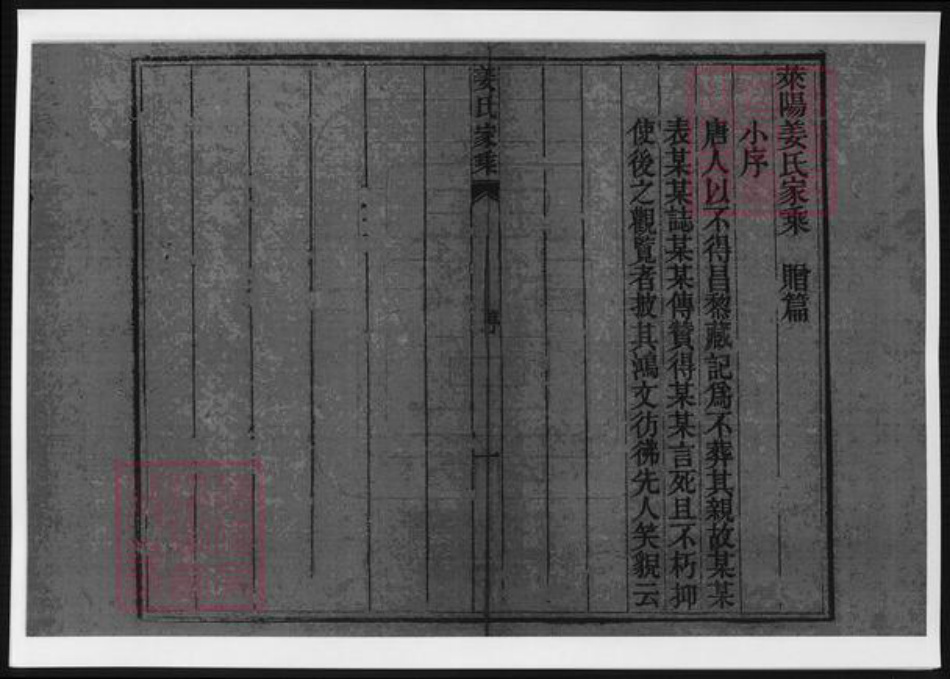 萊陽姜氏家乘 贈篇
小序
唐人以不得昌黎藏記爲不葬其親故某某
表某某誌某某傳贊得某某言死且不朽抑
使後之觀覧者披其鴻文彷彿先人笑貌云
姜氏家乘
一